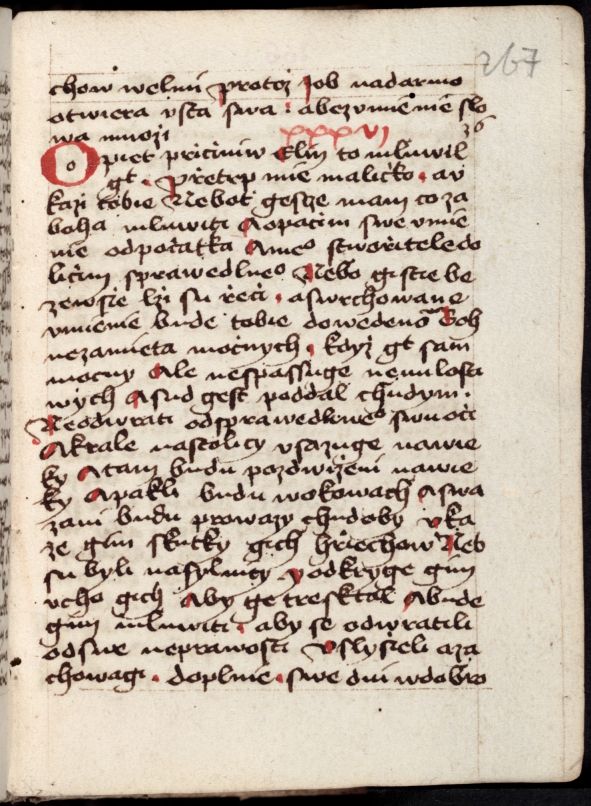 267
chow welmi protoz Job nadarmo
otwiera vsta swa : abezvmienie slo
wa mnozi xxxvi 36
Opiet priciniw Eliu to mluwil
gt . Přetrp mie malićko . av
kazi tobie Nebot gescze mam co za
boha mluwiti Aopacim swe vmie
nie odpočatka Ameo stworitele do
licim sprawedlneo Nebo gistie be
zewsie lzi su řeči . aswrchowane
vmienie bude tobie dowedeno Boh
nezamieta mocnych . kdyz gt sam
mocny Ale nespassuge nemilosti
wych Asud gest poddal chudym .
Neodwrati odsprawedliweo swu oci
Akrale nastolicy vsazuge nawie
ky Atam budu pozdwizeni nawie
ky Apakli budu wokowach Aswa
zani budu prowazy chudoby vka
ze gim skutky gich hřiechow Neb
su byli nasylnicy yodkryge gim
vcho gich Aby ge tresktal Abude
gim mluwiti . aby se odwratili
odswe neprawosti Vslysieli aza
chowagi . doplnie . swe dni wdobro